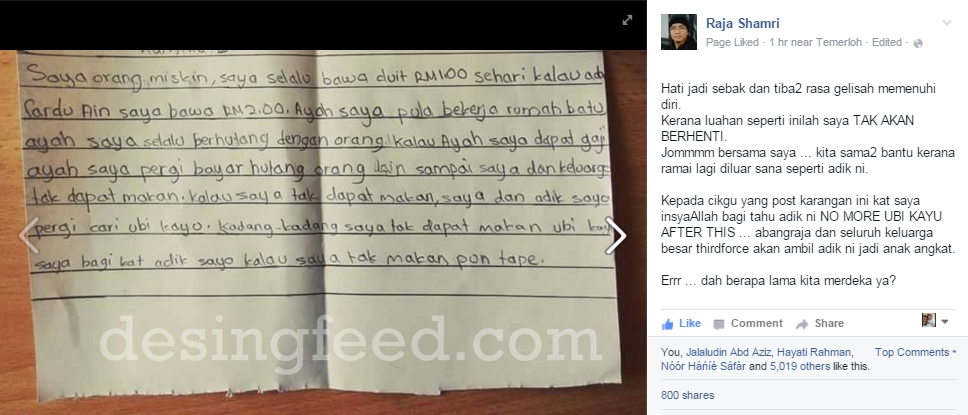 Saya orang miskin, saya selalu bawa duit RM100 sehari kalau ada
Fardu Ain saya bawa RM2.00. Ayah saya pula bekerja rumah batu
ayah saya selalu berhutang dengan orang kalau Ayah saya dapat gaji
ayah saya pergi bayar hutang orang lain sampai saya dan keluarga
tak dapat makan. kalau saya tak dapat makan, saya dan adik saya
pergi cari ubi kayo. kadang-kadang saya tak dapat makan ubi kayo
saya bagi kat adik saya kalau saya tak makan pon tape.
desingfeed.com
Raja Shamri
Page Liked · 1 hr near Temerloh · Edited ·
Hati jadi sebak dan tiba2 rasa gelisah memenuhi
diri.
Kerana luahan seperti inilah saya TAK AKAN
BERHENTI.
Jommmm bersama saya ... kita sama2 bantu kerana
ramai lagi diluar sana seperti adik ni.
Kepada cikgu yang post karangan ini kat saya
insyaAllah bagi tahu adik ni NO MORE UBI KAYU
AFTER THIS ... abangraja dan seluruh keluarga
besar thirdforce akan ambil adik ni jadi anak angkat.
Errr ... dah berapa lama kita merdeka ya?
Like Comment Share
You, Jalaludin Abd Aziz, Hayati Rahman, Top Comments
Nóór Háñíé Sáfár and 5,019 others like this.
800 shares